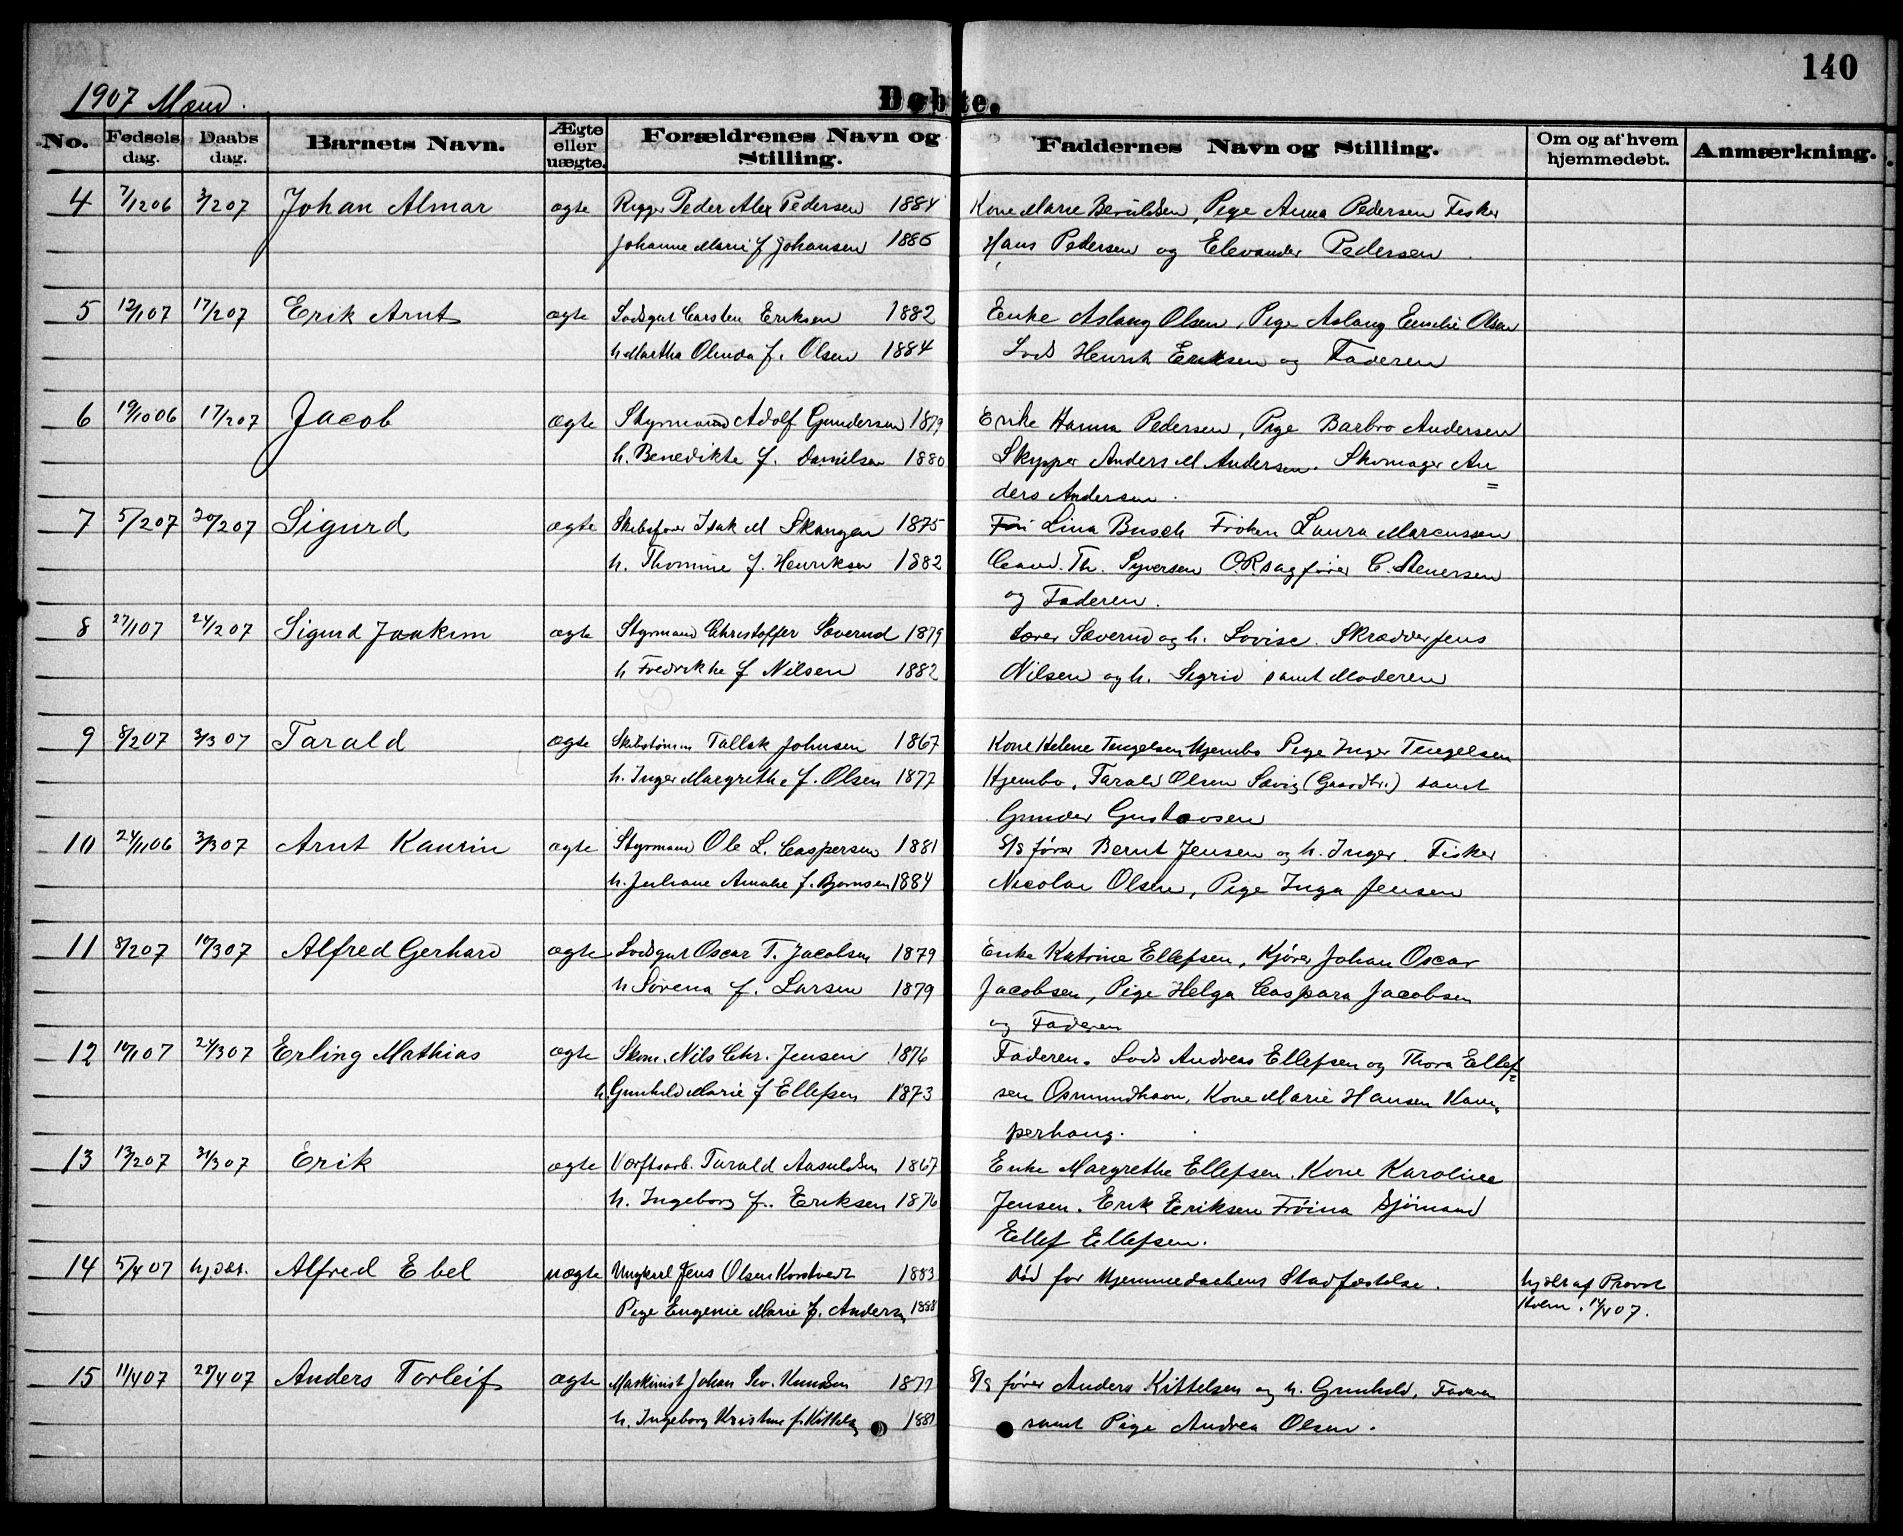 140
1907 Mænd.
Døbte.
No. Fødsels dag. Daabs dag. Barnets Navn. Ægte eller uægte. Forældrenes Navn og Stilling. Faddernes Navn og Stilling. Om og af hvem hjemmedøbt. Anmærkning.
4 7/12 06 3/2 07 Johan Almar ægte Rigger Peder Alex Pedersen 1884 Kone Marie Beruldsen, Pige Anna Pedersen Fisker
Johanne Marie f Johansen 1886 Hans Pedersen og Elevander Pedersen.
5 12/1 07 17/2 07 Erik Arnt ægte Lodsgut Carsten Eriksen 1882 Enke Aslaug Olsen, Pige Aslaug Emelie Olsen
h Martha Olinda f. Olsen 1884 Lods Henrik Eriksen og Faderen
6 19/10 06 17/2 07 Jacob ægte Styrmand Adolf Gundersen 1879 Enke Hanna Pedersen, Pige Barbro Andersen
h. Benedikte f. Danielsen 1880 Skypper Anders M Andersen. Skomager An=
ders Andersen.
7 5/2 07 20/2 07 Sigurd ægte Skibsfører Isak M Skangen 1875 Lina Busch Frøken Laura Marcussen
h. Thomine f. Henriksen 1882 Cand. Th. Syversen O.R.sagfører C. Stenersen
og Faderen.
8 27/1 07 24/2 07 Sigurd Joakim ægte Styrmand Christoffer Sæverud 1879 Lærer Sæverud og h. Lovise. Skrædder Jens
h Fredrikke f Nilsen 1882 Nilsen og h. Sigrid samt Moderen
9 8/2 07 3/3 07 Tarald ægte Skibstømm Tallak Johnsen 1867 Kone Helene Tengelsen Hjembo Pige Inger Tengelsen
h. Inger Margrethe f. Olsen 1877 Hjembo, Tarald Olsen Savig (Gaardbr.) samt
Gunder Gustavsen
10 24/11 06 3/3 07 Arnt Kaurin ægte Styrmand Ole L. Caspersen 1881 S/S fører Bernt Jensen og h. Inger. Fisker
h. Juliane Amalie f. Bjørnsen 1884 Nicolai Olsen, Pige Inga Jensen
11 8/2 07 10/3 07 Alfred Gerhard ægte Lodsgut Oscar T. Jacobsen 1879 Enke Katrine Ellefsen, Kjører Johan Oscar
h Sørena f. Larsen 1879 Jacobsen, Pige Helga Caspara Jacobsen
og Faderen
12 10/1 07 24/3 07 Erling Mathias ægte Skom. Nils Chr. Jensen 1876 Faderen. Lods Andreas Ellefsen og Thora Ellef=
h. Gunhild Marie f Ellefsen 1873 sen Osmundhavn, Kone Marie Hansen Kam-
perhaug.
13 13/2 07 31/3 07 Erik ægte Værftsarb. Tarald Aasuldsen 1867 Enke Margrethe Ellefsen. Kone Karoline
h. Ingeborg f. Eriksen 1876 Jensen. Erik Eriksen Frøina Sjømand
Ellef Ellefsen.
14 5/4 07 hjdøbt. Alfred Ebel uægte Ungkarl Jens Olsen Korstvedt 1883 Død før Hjemmedaabens Stadfæstelse. hjdøbt af Provst
Pige Eugenie Marie f. Andersen 1888 Holm. 14/4 07.
15 11/4 07 28/4 07 Anders Torleif ægte Maskinist Johan Sev. Knudsen 1877 S/S fører Anders Kittelsen og h. Gunhild, Faderen
h. Ingeborg Kristine f. Kittels 1881 samt Pige Andrea Olsen.